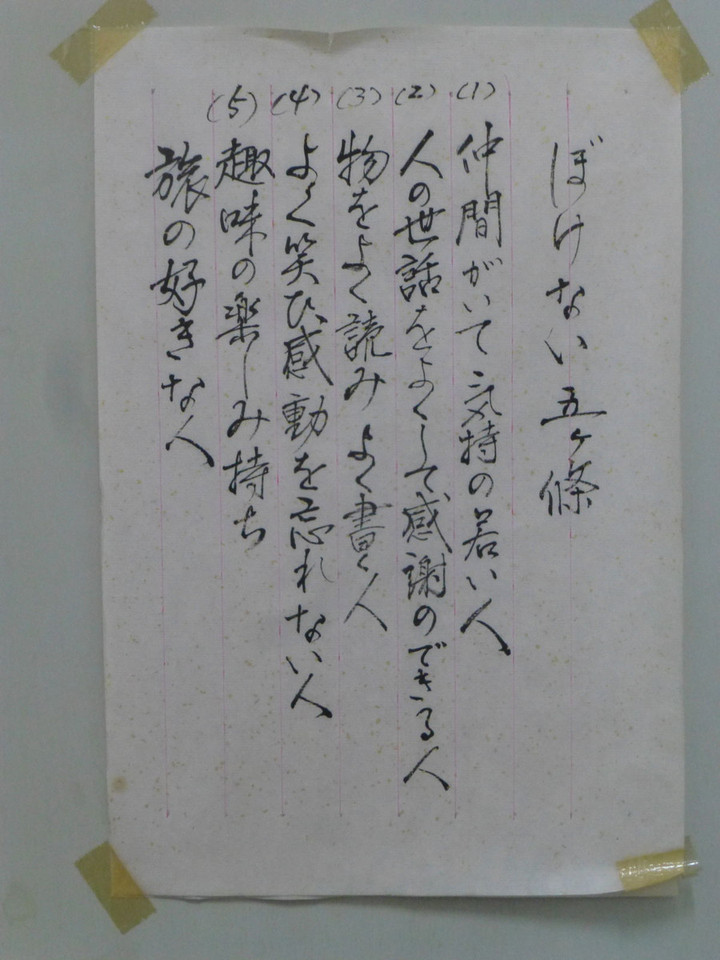 ぼけない五ヶ條
(1) 仲間がいて気持の若い人
(2) 人の世話をよくして感謝のできる人
(3) 物をよく読みよく書く人
(4) よく笑ひ感動を忘れない人
(5) 趣味の楽しみ持ち
旅の好きな人